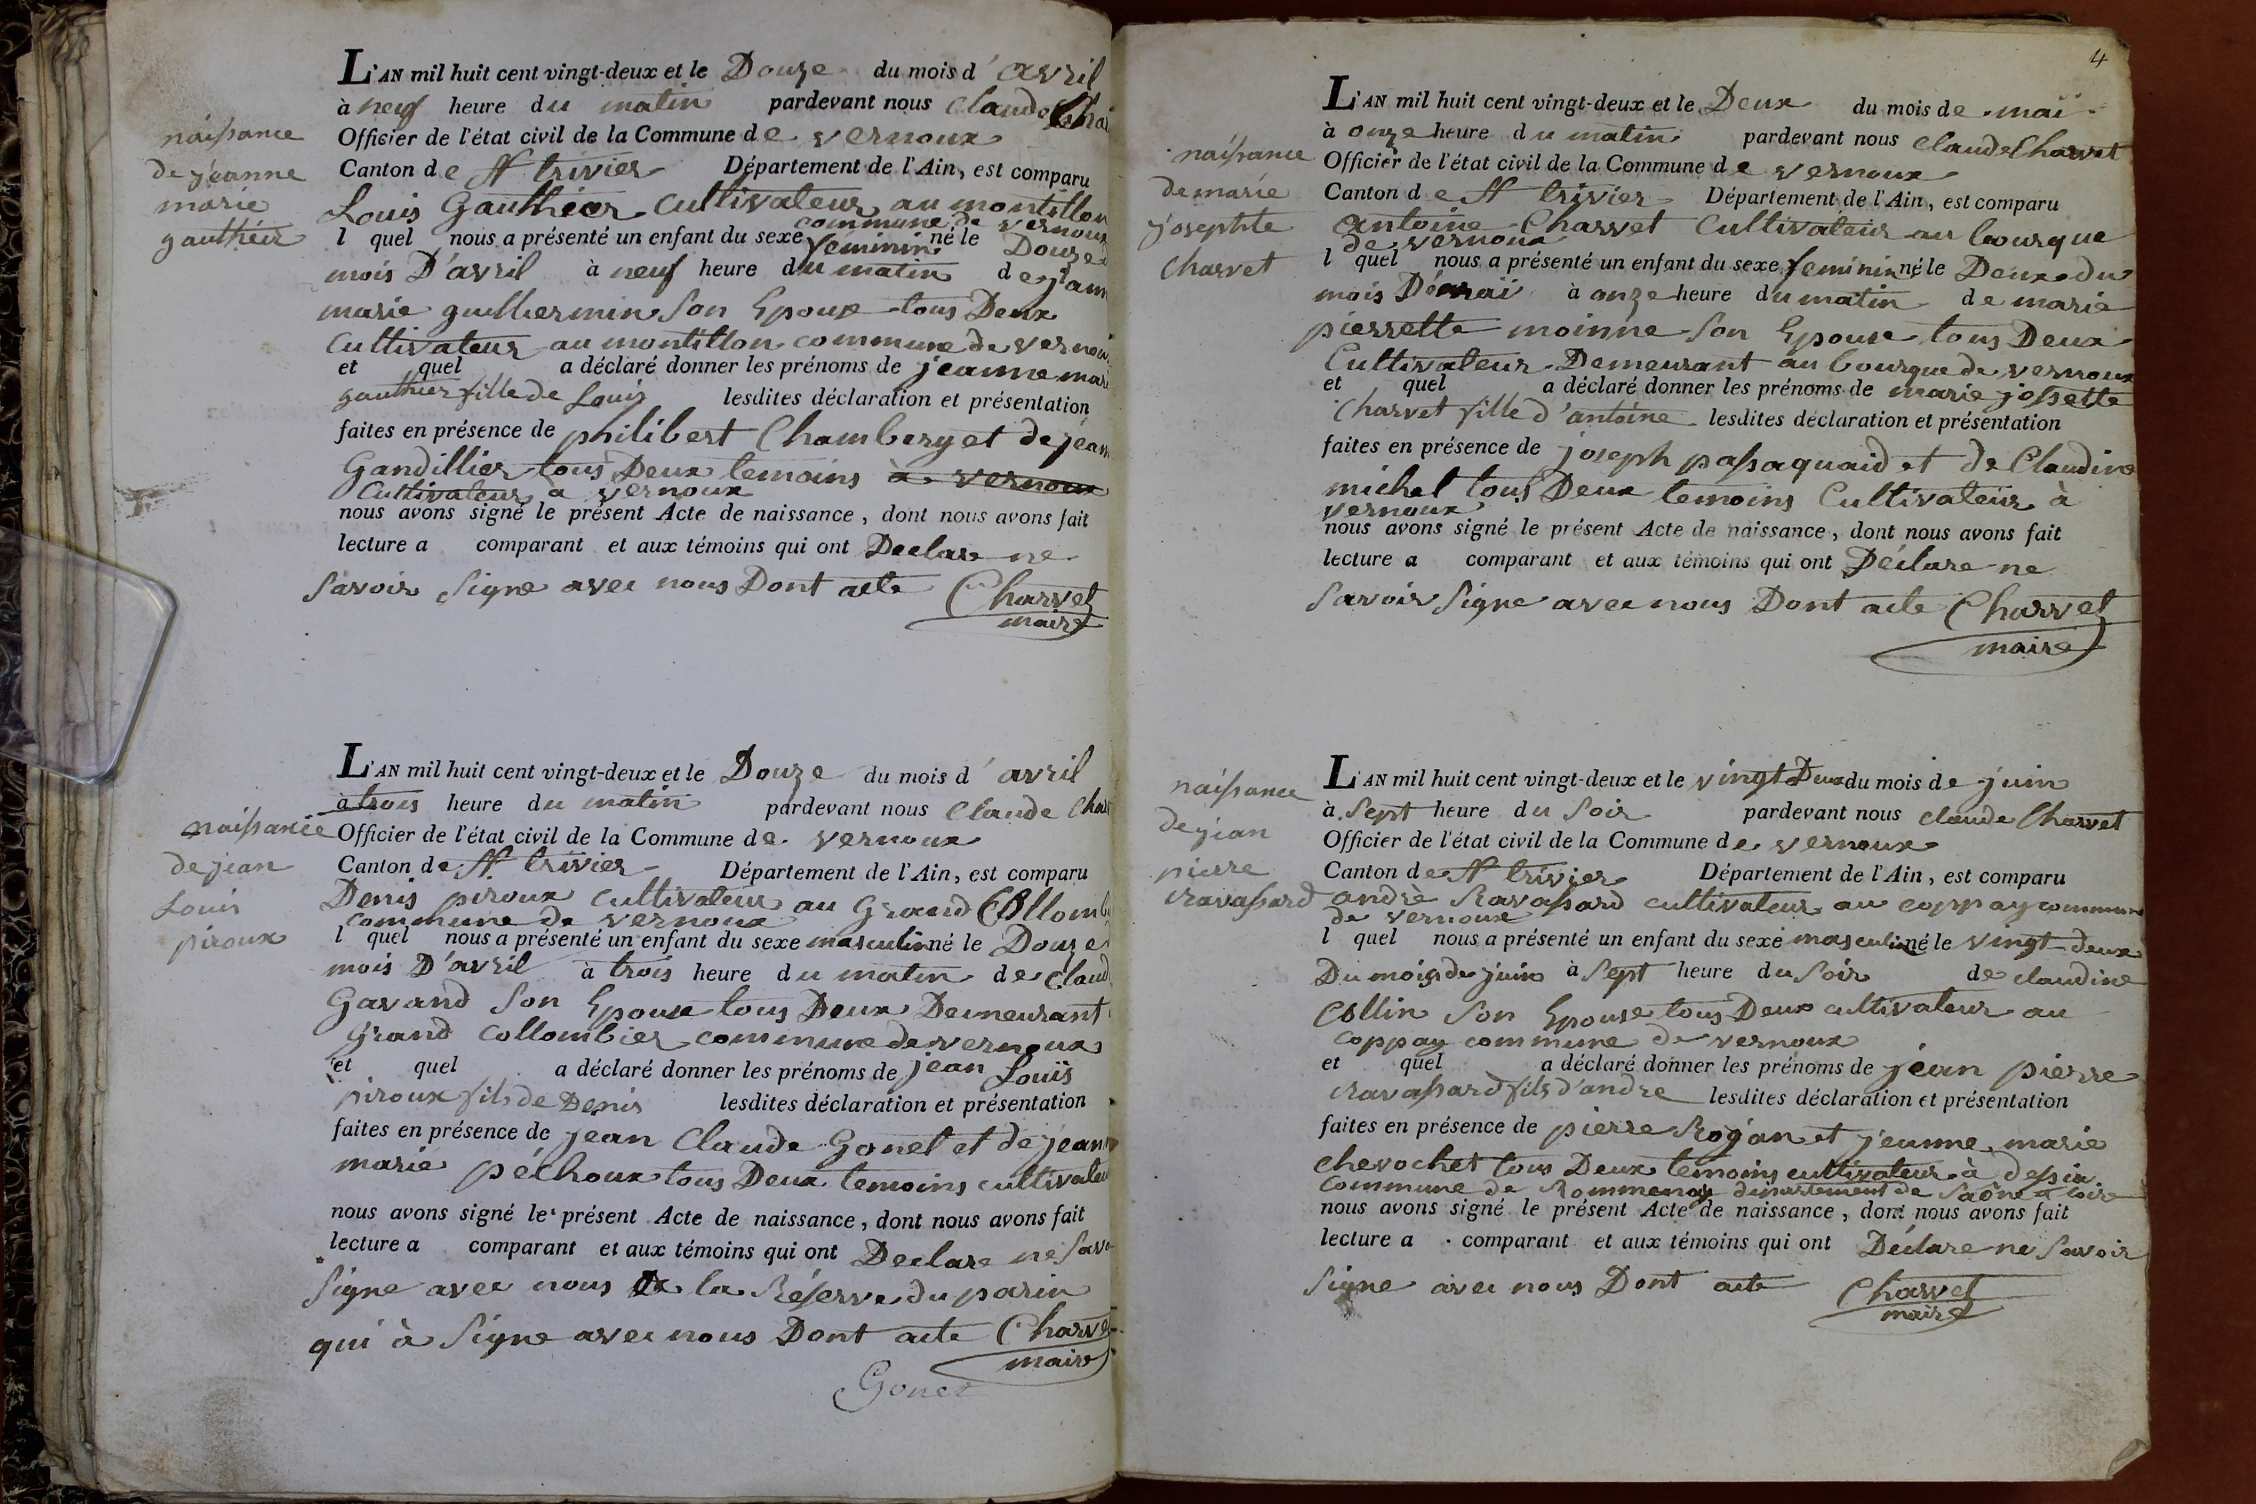 naissance
de jeanne
marie
gauthier
L'AN mil huit cent vingt-deux et le Douze du mois d'avril
à neuf heure du matin pardevant nous Claude Char
Officier de l'état civil de la Commune de vernoux
Canton de St trivier Département de l'Ain, est comparu
Louis Gauthier Cultivateur au montillon
commune de vernoux
l quel nous a présenté un enfant du sexe féminin né le Douze
mois D'avril à neuf heure du matin de jann
marie guillermin Son Epouse tous Deux
Cultivateur au montillon commune de vernoux
et quel a déclaré donner les prénoms de jeanne mari
gauthier fille de Louis lesdites déclaration et présentation
faites en présence de philibert Chambery et de jean
Gandillier tous Deux temoins à vernoux
Cultivateur à vernoux
nous avons signé le présent Acte de naissance, dont nous avons fait
lecture a comparant et aux témoins qui ont Declare ne
Savoir Signe avec nous Dont acte Charvet
maire
naissance
de jean
Louis
piroux
L'AN mil huit cent vingt-deux et le Douze du mois d'avril
à trois heure du matin pardevant nous Claude Char
Officier de l'état civil de la Commune de vernoux
Canton de St trivier Département de l'Ain, est comparu
Denis piroux cultivateur au Grand Collomb
commune de vernoux
l quel nous a présenté un enfant du sexe masculin né le Douze
mois D'avril à trois heure du matin de Claud
Gavand Son Epouse tous Deux Demeurant
Grand Collombier commune de vernoux
et quel a déclaré donner les prénoms de jean Louis
piroux fils de Denis lesdites déclaration et présentation
faites en présence de jean Claude Gonet et de jeann
marie péchoux tous Deux temoins cultivateu
nous avons signé le présent Acte de naissance, dont nous avons fait
lecture a comparant et aux témoins qui ont Declare ne Savo
Signe avec nous De la Réserve du parin
qui à Signe avec nous Dont acte Charve
maire
Gonet
4
naissance
de marie
josephte
Charvet
L'AN mil huit cent vingt-deux et le Deux du mois de mai
à onze heure du matin pardevant nous Claude Charvet
Officier de l'état civil de la Commune de vernoux
Canton de St trivier Département de l'Ain, est comparu
antoine Charvet Cultivateur au bourque
de vernoux
l quel nous a présenté un enfant du sexe feminin né le Deux du
mois De mai à onze heure du matin de marie
pierrette moinne Son Epouse tous Deux
Cultivateur Demeurant au bourque de vernoux
et quel a déclaré donner les prénoms de marie josette
Charvet fille d'antoine lesdites déclaration et présentation
faites en présence de joseph passaquaid et de Claudine
michel tous Deux temoins Cultivateur à
vernoux
nous avons signé le présent Acte de naissance, dont nous avons fait
lecture a comparant et aux témoins qui ont Déclare ne
Savoir Signe avec nous Dont acte Charvet
maire
naissance
de jean
pierre
ravassard
L'AN mil huit cent vingt-deux et le vingt Deux du mois de juin
à Sept heure du Soir pardevant nous Claude Charvet
Officier de l'état civil de la Commune de vernoux
Canton de St trivier Département de l'Ain, est comparu
andrè Ravassard cultivateur au coppay commune
de vernoux
l quel nous a présenté un enfant du sexe masculin né le vingt deux
Du mois de juin à Sept heure du Soir de claudine
Collin Son Epouse tous Deux cultivateur au
coppay commune de vernoux
et quel a déclaré donner les prénoms de jean pierre
ravassard fils d'andre lesdites déclaration et présentation
faites en présence de pierre Rojan et jeanne marie
chevochet tous Deux temoins cultivateur à dessia
commune de Rommenay departement de Saône a loire
nous avons signé le présent Acte de naissance, dont nous avons fait
lecture a comparant et aux témoins qui ont Déclare ne Savoir
Signe avec nous Dont acte Charvet
maire